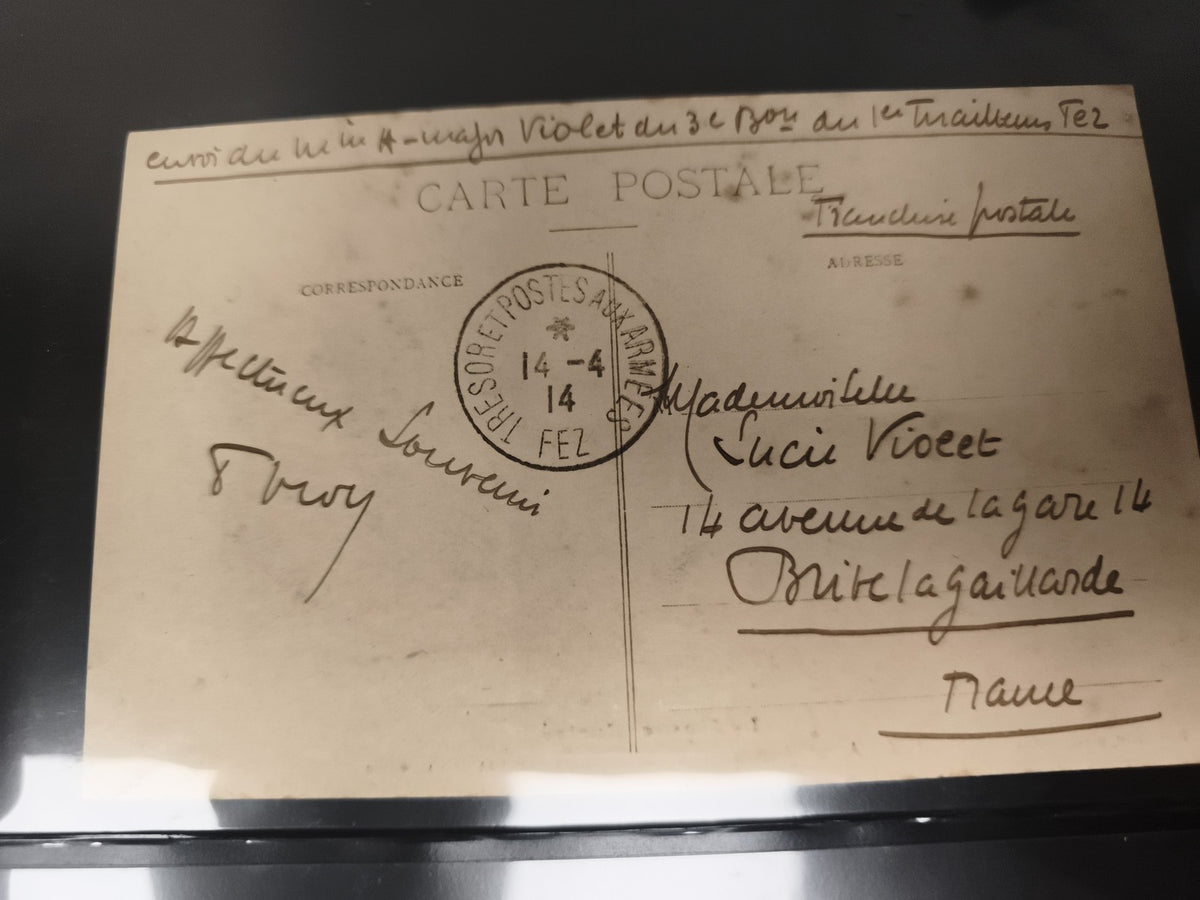 envoi du Mein A-major Violet du 3e Bon du 1er Tirailleurs Fez
CARTE POSTALE
Franchise postale
CORRESPONDANCE
ADRESSE
TRESOR ET POSTES AUX ARMEES
14 -4
14
FEZ
Affectueux Souvenir
Mademoiselle
Lucie Violet
14 avenue de la gare 14
Brive la gaillarde
France